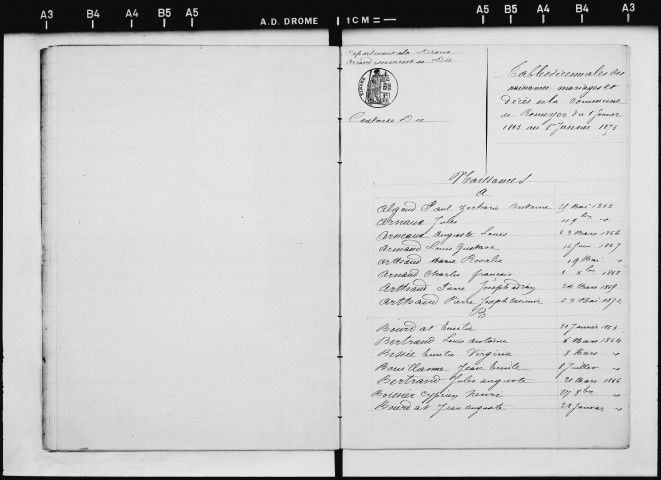 A3 B4 A4 B5 A5 A.D. DROME 1CM A5 B5 A4 B4 A3
Département de la Drome
Arrondissement de Die
Canton de Die
Tables décennales des
naissances mariages et
décès de la commune
de Romeyer du 1er Janvier
1863 au 1er Janvier 1873
Naissances
A
Algoud Paul Zacharie Antoine 25 Mai 1863
Arnaux Jules 11 9bre "
Arneaux Auguste Louis 23 Mars 1866
Armand Louis Gustave 10 Juin 1867
Arthaud Marie Rosalie 19 Mai "
Arnaud Charles François 2 Xbre 1868
Arthaud Pierre Joseph Adrien 24 Mars 1869
Arthaud Pierre Joseph Casimir 23 Mai 1872
B
Bourdat Emilie 20 Janvier 1863
Bertrand Louis Antoine 6 Mars 1864
Bessée Emilie Virginie 8 Mars "
Bouillanne Jean Emile 8 Juillet "
Bertrand Jules Auguste 20 Mars 1866
Boissier Cyprien Henri 27 8bre "
Bourdat Jean Auguste 28 Janvier "
A3 B4 A4 B5 A5 A5 B5 A4 B4 A3